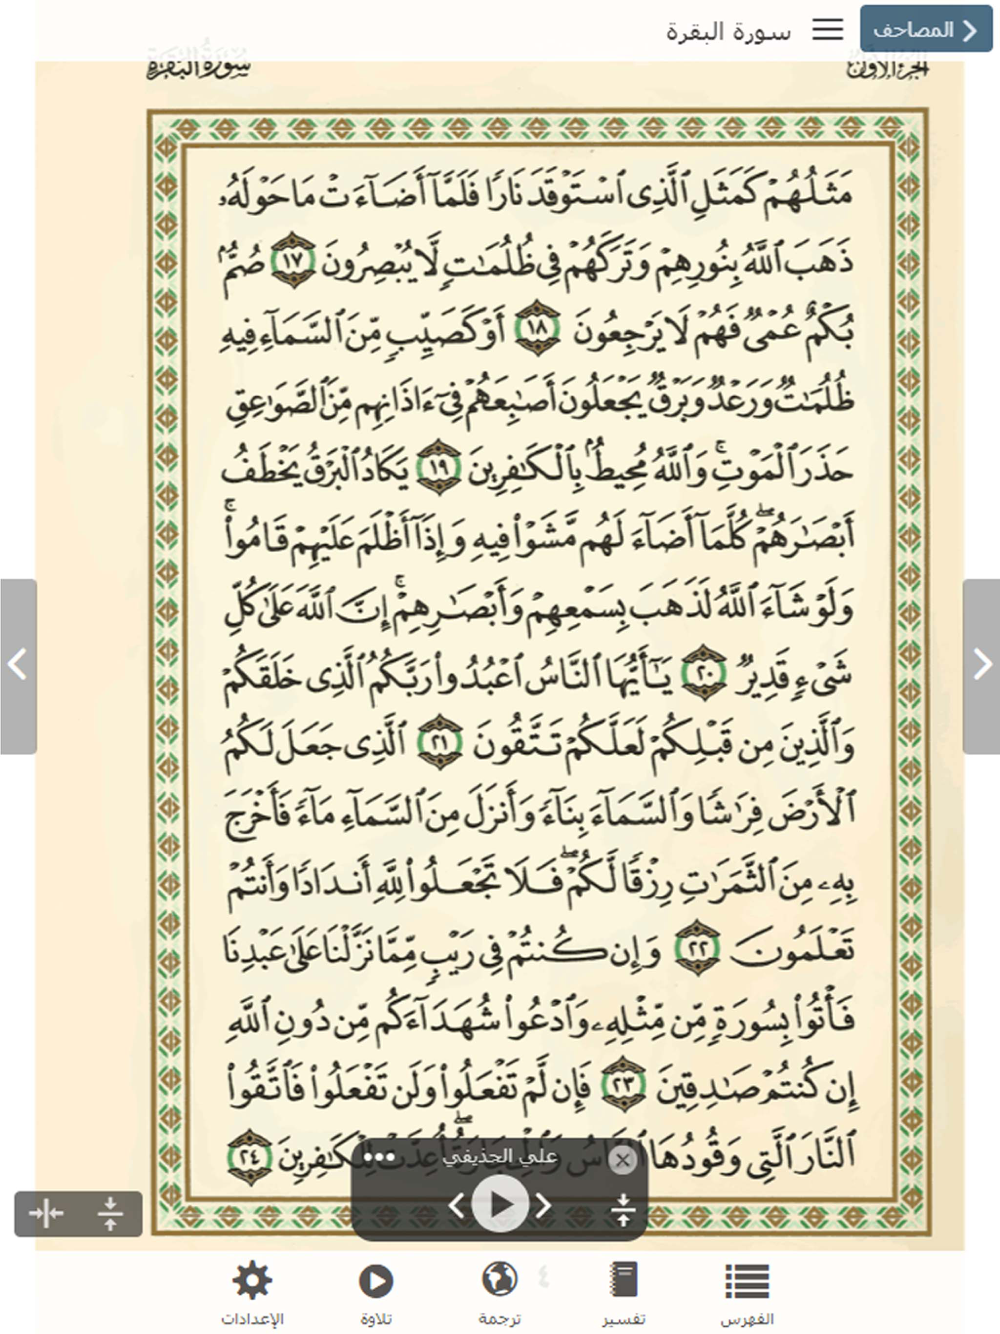 المصاحف
سورة البقرة
الجزء الأول
سورة البقرة
مَثَلُهُمْ كَمَثَلِ ٱلَّذِى ٱسْتَوْقَدَ نَارًا فَلَمَّآ أَضَآءَتْ مَا حَوْلَهُۥ
ذَهَبَ ٱللَّهُ بِنُورِهِمْ وَتَرَكَهُمْ فِى ظُلُمَٰتٍ لَّا يُبْصِرُونَ ١٧ صُمٌّۢ
بُكْمٌ عُمْىٌ فَهُمْ لَا يَرْجِعُونَ ١٨ أَوْ كَصَيِّبٍ مِّنَ ٱلسَّمَآءِ فِيهِ
ظُلُمَٰتٌ وَرَعْدٌ وَبَرْقٌ يَجْعَلُونَ أَصَٰبِعَهُمْ فِىٓ ءَاذَانِهِم مِّنَ ٱلصَّوَٰعِقِ
حَذَرَ ٱلْمَوْتِ ۚ وَٱللَّهُ مُحِيطٌۢ بِٱلْكَٰفِرِينَ ١٩ يَكَادُ ٱلْبَرْقُ يَخْطَفُ
أَبْصَٰرَهُمْ ۖ كُلَّمَآ أَضَآءَ لَهُم مَّشَوْا۟ فِيهِ وَإِذَآ أَظْلَمَ عَلَيْهِمْ قَامُوا۟ ۚ
وَلَوْ شَآءَ ٱللَّهُ لَذَهَبَ بِسَمْعِهِمْ وَأَبْصَٰرِهِمْ ۚ إِنَّ ٱللَّهَ عَلَىٰ كُلِّ
شَىْءٍ قَدِيرٌ ٢٠ يَٰٓأَيُّهَا ٱلنَّاسُ ٱعْبُدُوا۟ رَبَّكُمُ ٱلَّذِى خَلَقَكُمْ
وَٱلَّذِينَ مِن قَبْلِكُمْ لَعَلَّكُمْ تَتَّقُونَ ٢١ ٱلَّذِى جَعَلَ لَكُمُ
ٱلْأَرْضَ فِرَٰشًا وَٱلسَّمَآءَ بِنَآءً وَأَنزَلَ مِنَ ٱلسَّمَآءِ مَآءً فَأَخْرَجَ
بِهِۦ مِنَ ٱلثَّمَرَٰتِ رِزْقًا لَّكُمْ ۖ فَلَا تَجْعَلُوا۟ لِلَّهِ أَندَادًا وَأَنتُمْ
تَعْلَمُونَ ٢٢ وَإِن كُنتُمْ فِى رَيْبٍ مِّمَّا نَزَّلْنَا عَلَىٰ عَبْدِنَا
فَأْتُوا۟ بِسُورَةٍ مِّن مِّثْلِهِۦ وَٱدْعُوا۟ شُهَدَآءَكُم مِّن دُونِ ٱللَّهِ
إِن كُنتُمْ صَٰدِقِينَ ٢٣ فَإِن لَّمْ تَفْعَلُوا۟ وَلَن تَفْعَلُوا۟ فَٱتَّقُوا۟
ٱلنَّارَ ٱلَّتِى وَقُودُهَا ٱلنَّاسُ وَٱلْحِجَارَةُ ۖ أُعِدَّتْ لِلْكَٰفِرِينَ ٢٤
علي الحذيفي
٤
الفهرس
تفسير
ترجمة
تلاوة
الإعدادات